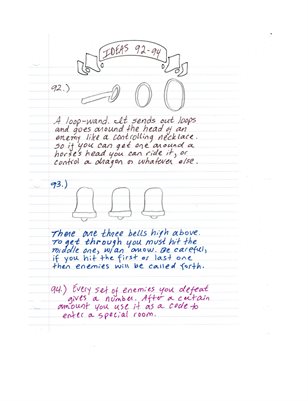 IDEAS 92-94
92.)
A loop-wand. It sends out loops
and goes around the head of an
enemy like a controlling necklace.
So if you can get one around a
horse's head you can ride it, or
control a dragon or whatever else.
93.)
There are three bells high above.
To get through you must hit the
middle one, w/an arrow. Be careful,
if you hit the first or last one
then enemies will be called forth.
94.) Every set of enemies you defeat
gives a number. After a certain
amount you use it as a code to
enter a special room.